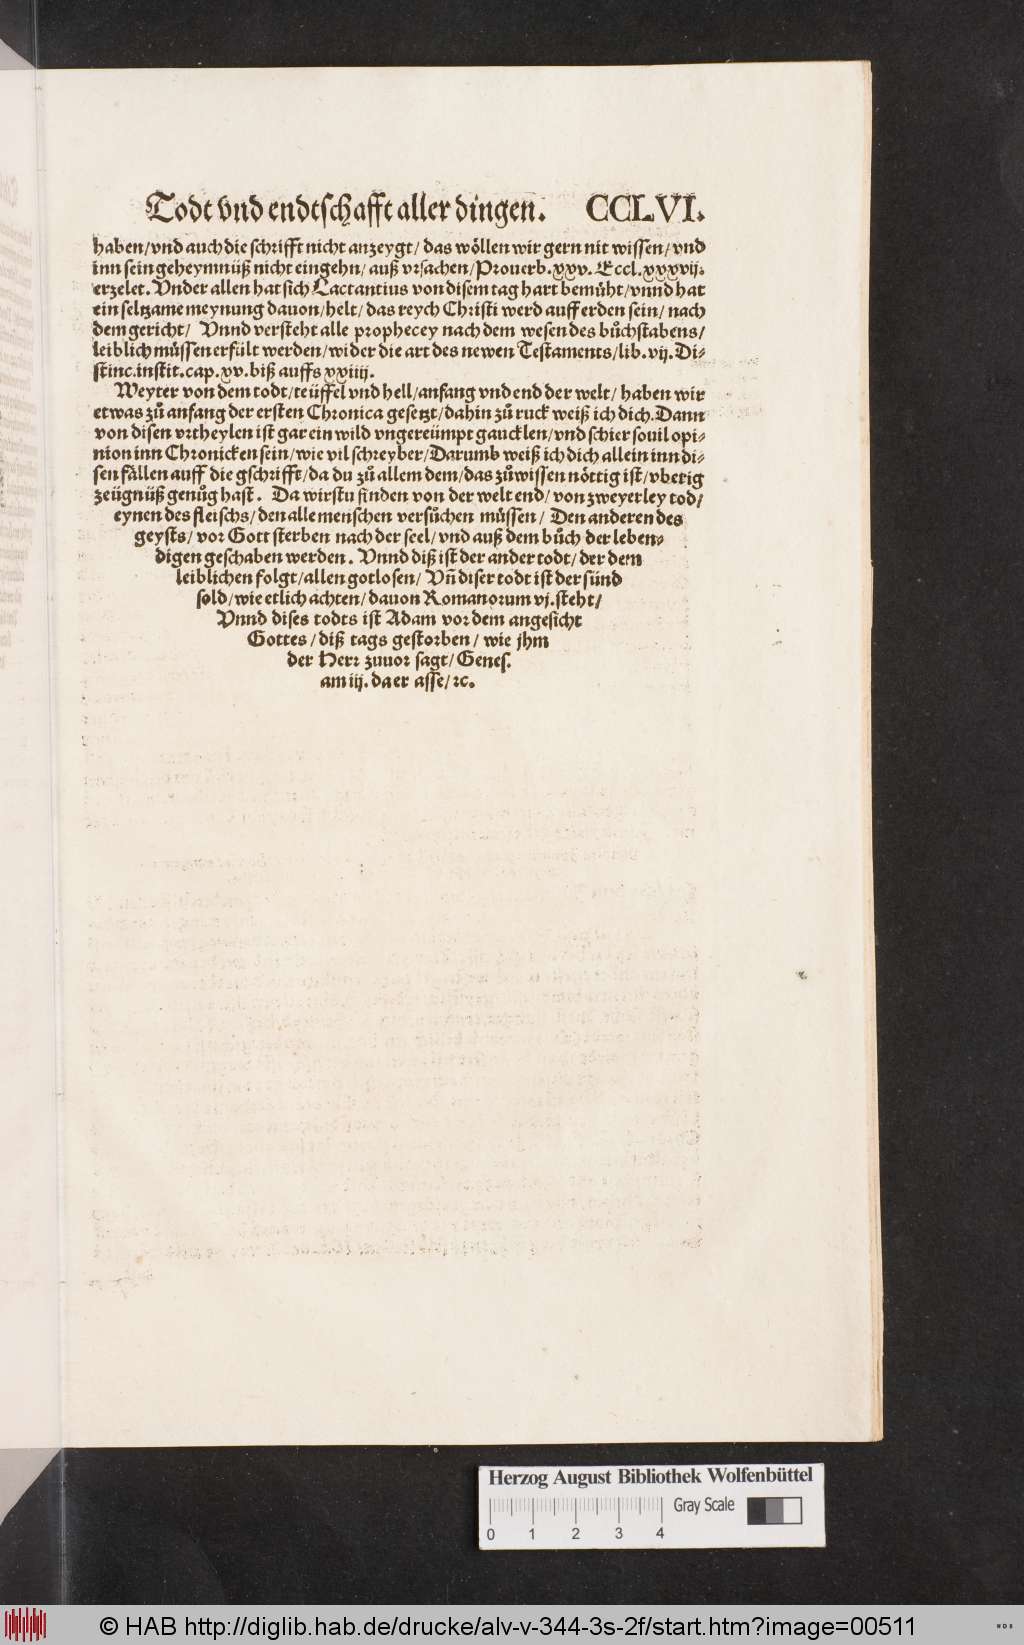 Todt vnd endtschafft aller dingen. CCLVI.
haben/vnd auch die schrifft nicht anzeygt/ das wöllen wir gern nit wissen/ vnd
inn sein geheymnüß nicht eingehn/ auß vrsachen/ Prouerb.xxv. Eccl.xxxvij.
erzelet. Vnder allen hat sich Lactantius von disem tag hart bemüht/ vnnd hat
ein seltzame meynung dauon/ helt/ das reych Christi werd auff erden sein/ nach
dem gericht/ Vnnd versteht alle prophecey nach dem wesen des bůchstabens/
leiblich müssen erfült werden/ wider die art des newen Testaments/ lib. vij. Di⸗
stinc.instit.cap. xv. biß auffs xxiiij.
Weyter von dem todt/ teüffel vnd hell/ anfang vnd end der welt/ haben wir
etwas zů anfang der ersten Chronica gesetzt/ dahin zů ruck weiß ich dich. Dann
von disen vrtheylen ist gar ein wild vngereümpt gaucklen/ vnd schier souil opi⸗
nion inn Chronicken sein/ wie vil schreyber/ Darumb weiß ich dich allein inn di⸗
sen fällen auff die gschrifft/ da du zů allem dem/ das zůwissen nöttig ist/ vberig
zeügnüß genůg hast. Da wirstu finden von der welt end/ von zweyerley tod/
eynen des fleischs/ den alle menschen versůchen müssen/ Den anderen des
geysts/ vor Gott sterben nach der seel/ vnd auß dem bůch der leben⸗
digen geschaben werden. Vnnd diß ist der ander todt/ der dem
leiblichen folgt/ allen gotlosen/ Vñ diser todt ist der sünd
sold/ wie etlich achten/ dauon Romanorum vj. steht/
Vnnd dises todts ist Adam vor dem angesicht
Gottes/ diß tags gestorben/ wie jhm
der Herr zuuor sagt/ Genes.
am iij. da er asse/ ꝛc.
Herzog August Bibliothek Wolfenbüttel
Gray Scale
0 1 2 3 4
© HAB http://diglib.hab.de/drucke/alv-v-344-3s-2f/start.htm?image=00511